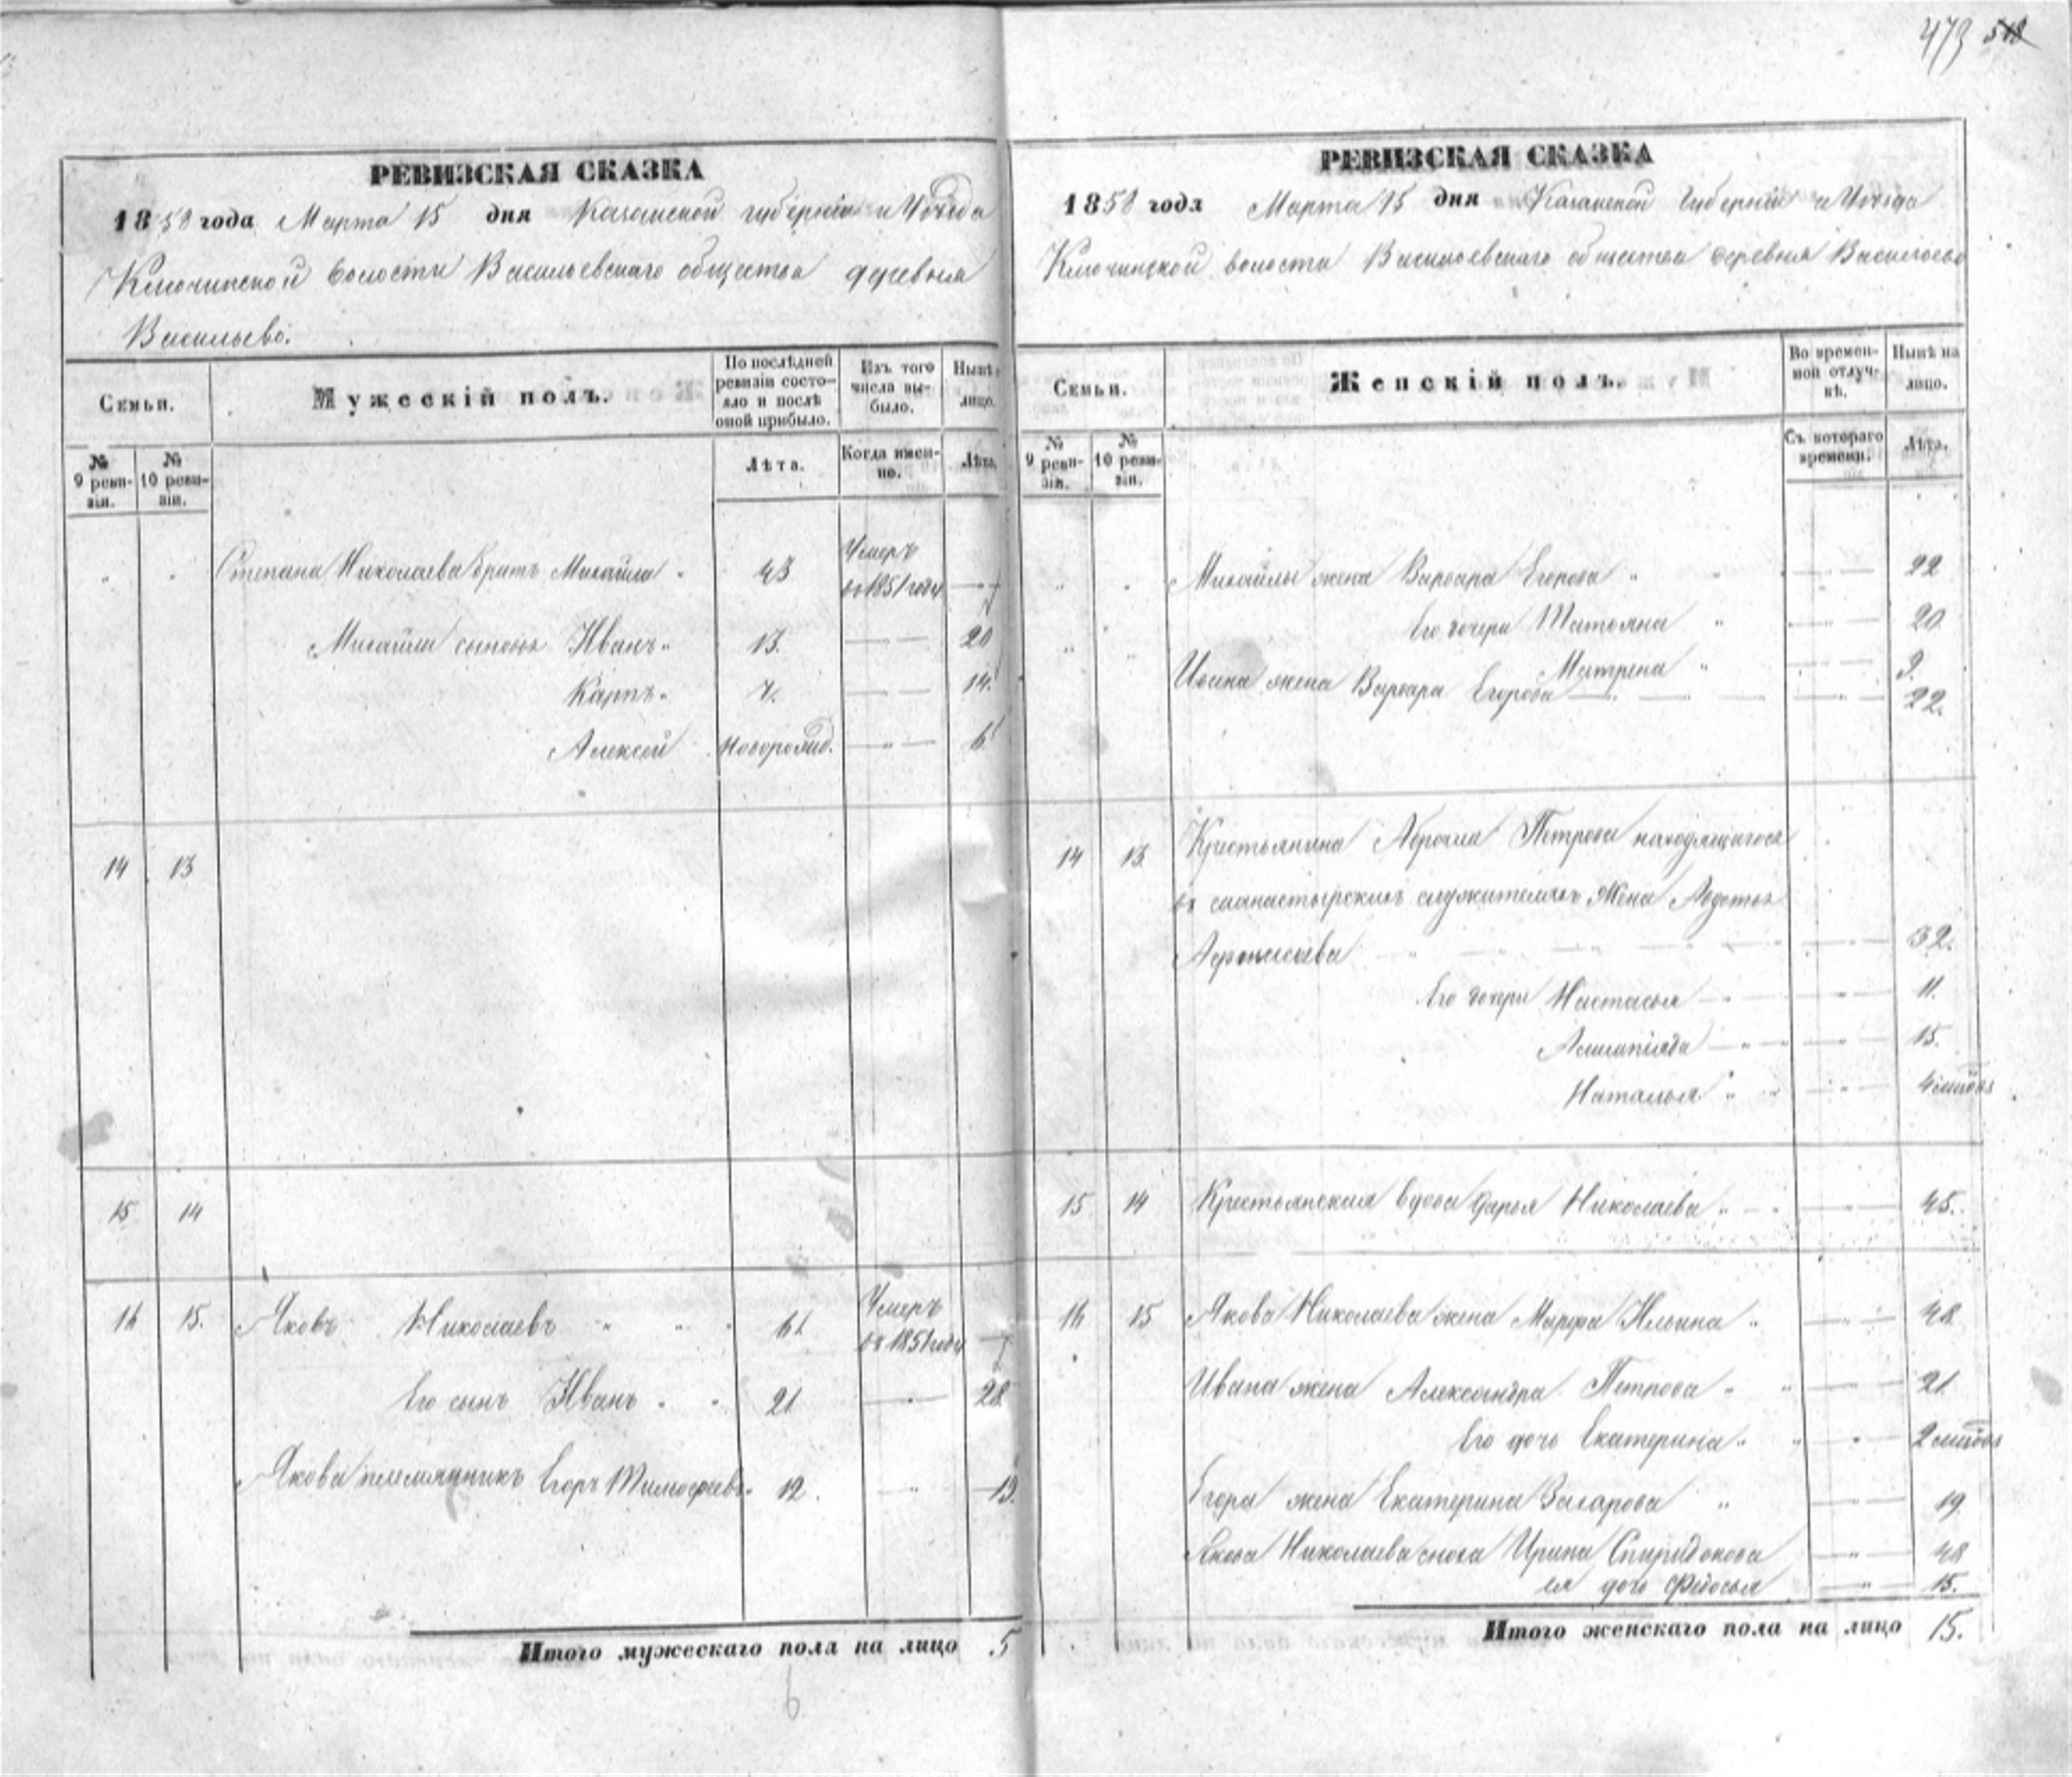 473 518
РЕВИЗСКАЯ СКАЗКА
1858 года Марта 15 дня Казанской губернии и Уѣзда
Ключинской волости Васильевскаго общества деревня
Васильево.
Семьи.
Мужескій полъ.
По послѣдней ревизіи состо-
яло и послѣ
оной прибыло.
Изъ того
числа вы-
было.
Нынѣ
лицо.
№
9 реви-
зіи.
№
10 реви-
зіи.
Лѣта.
Когда имен-
но.
Лѣта.
Степана Николаева братъ Михайла 43 Умеръ
въ 1851 году —
Михайлы сыновья Иванъ 13. — 20
Карпъ 7. — 14.
Алексей новорожд. — 6
14 13
15 14
16 15. Яковъ Николаевъ 61 Умеръ
въ 1851 году —
Его сынъ Иванъ 21 — 28
Якова племянникъ Егоръ Тимофеевъ 12. — 19.
Итого мужескаго пола на лицо 5
6
РЕВИЗСКАЯ СКАЗКА
1858 года Марта 15 дня Казанской Губерніи и Уѣзда
Ключинской волости Васильевскаго общества деревня Васильево
Семьи.
Женскій полъ.
Во времен-
ной отлуч-
кѣ.
Нынѣ на
лицо.
№
9 реви-
зіи.
№
10 реви-
зіи.
Съ котораго
времени.
Лѣта.
Михайлы жена Варвара Егорова — 22
Его дочери Татьяна — 20
Матрена — 9.
Ивана жена Варвара Егорова — 22.
14 13. Крестьянина Петрова находящагося
въ манастырскихъ служителяхъ Жена Авдотья
Афонасьева — 32.
Его дочери Настасья — 11.
— 15.
Наталья — 4
15 14 Крестьянская вдова Дарья Николаева — 45.
16 15 Якова Николаева жена Марфа Ильина — 48
Ивана жена Александра Петрова — 21.
Его дочь Екатерина — 2
Егора жена Екатерина Захарова — 19
Якова Николаева сноха Ирина Спиридонова — 48
ея дочь — 15.
Итого женскаго пола на лицо 15.